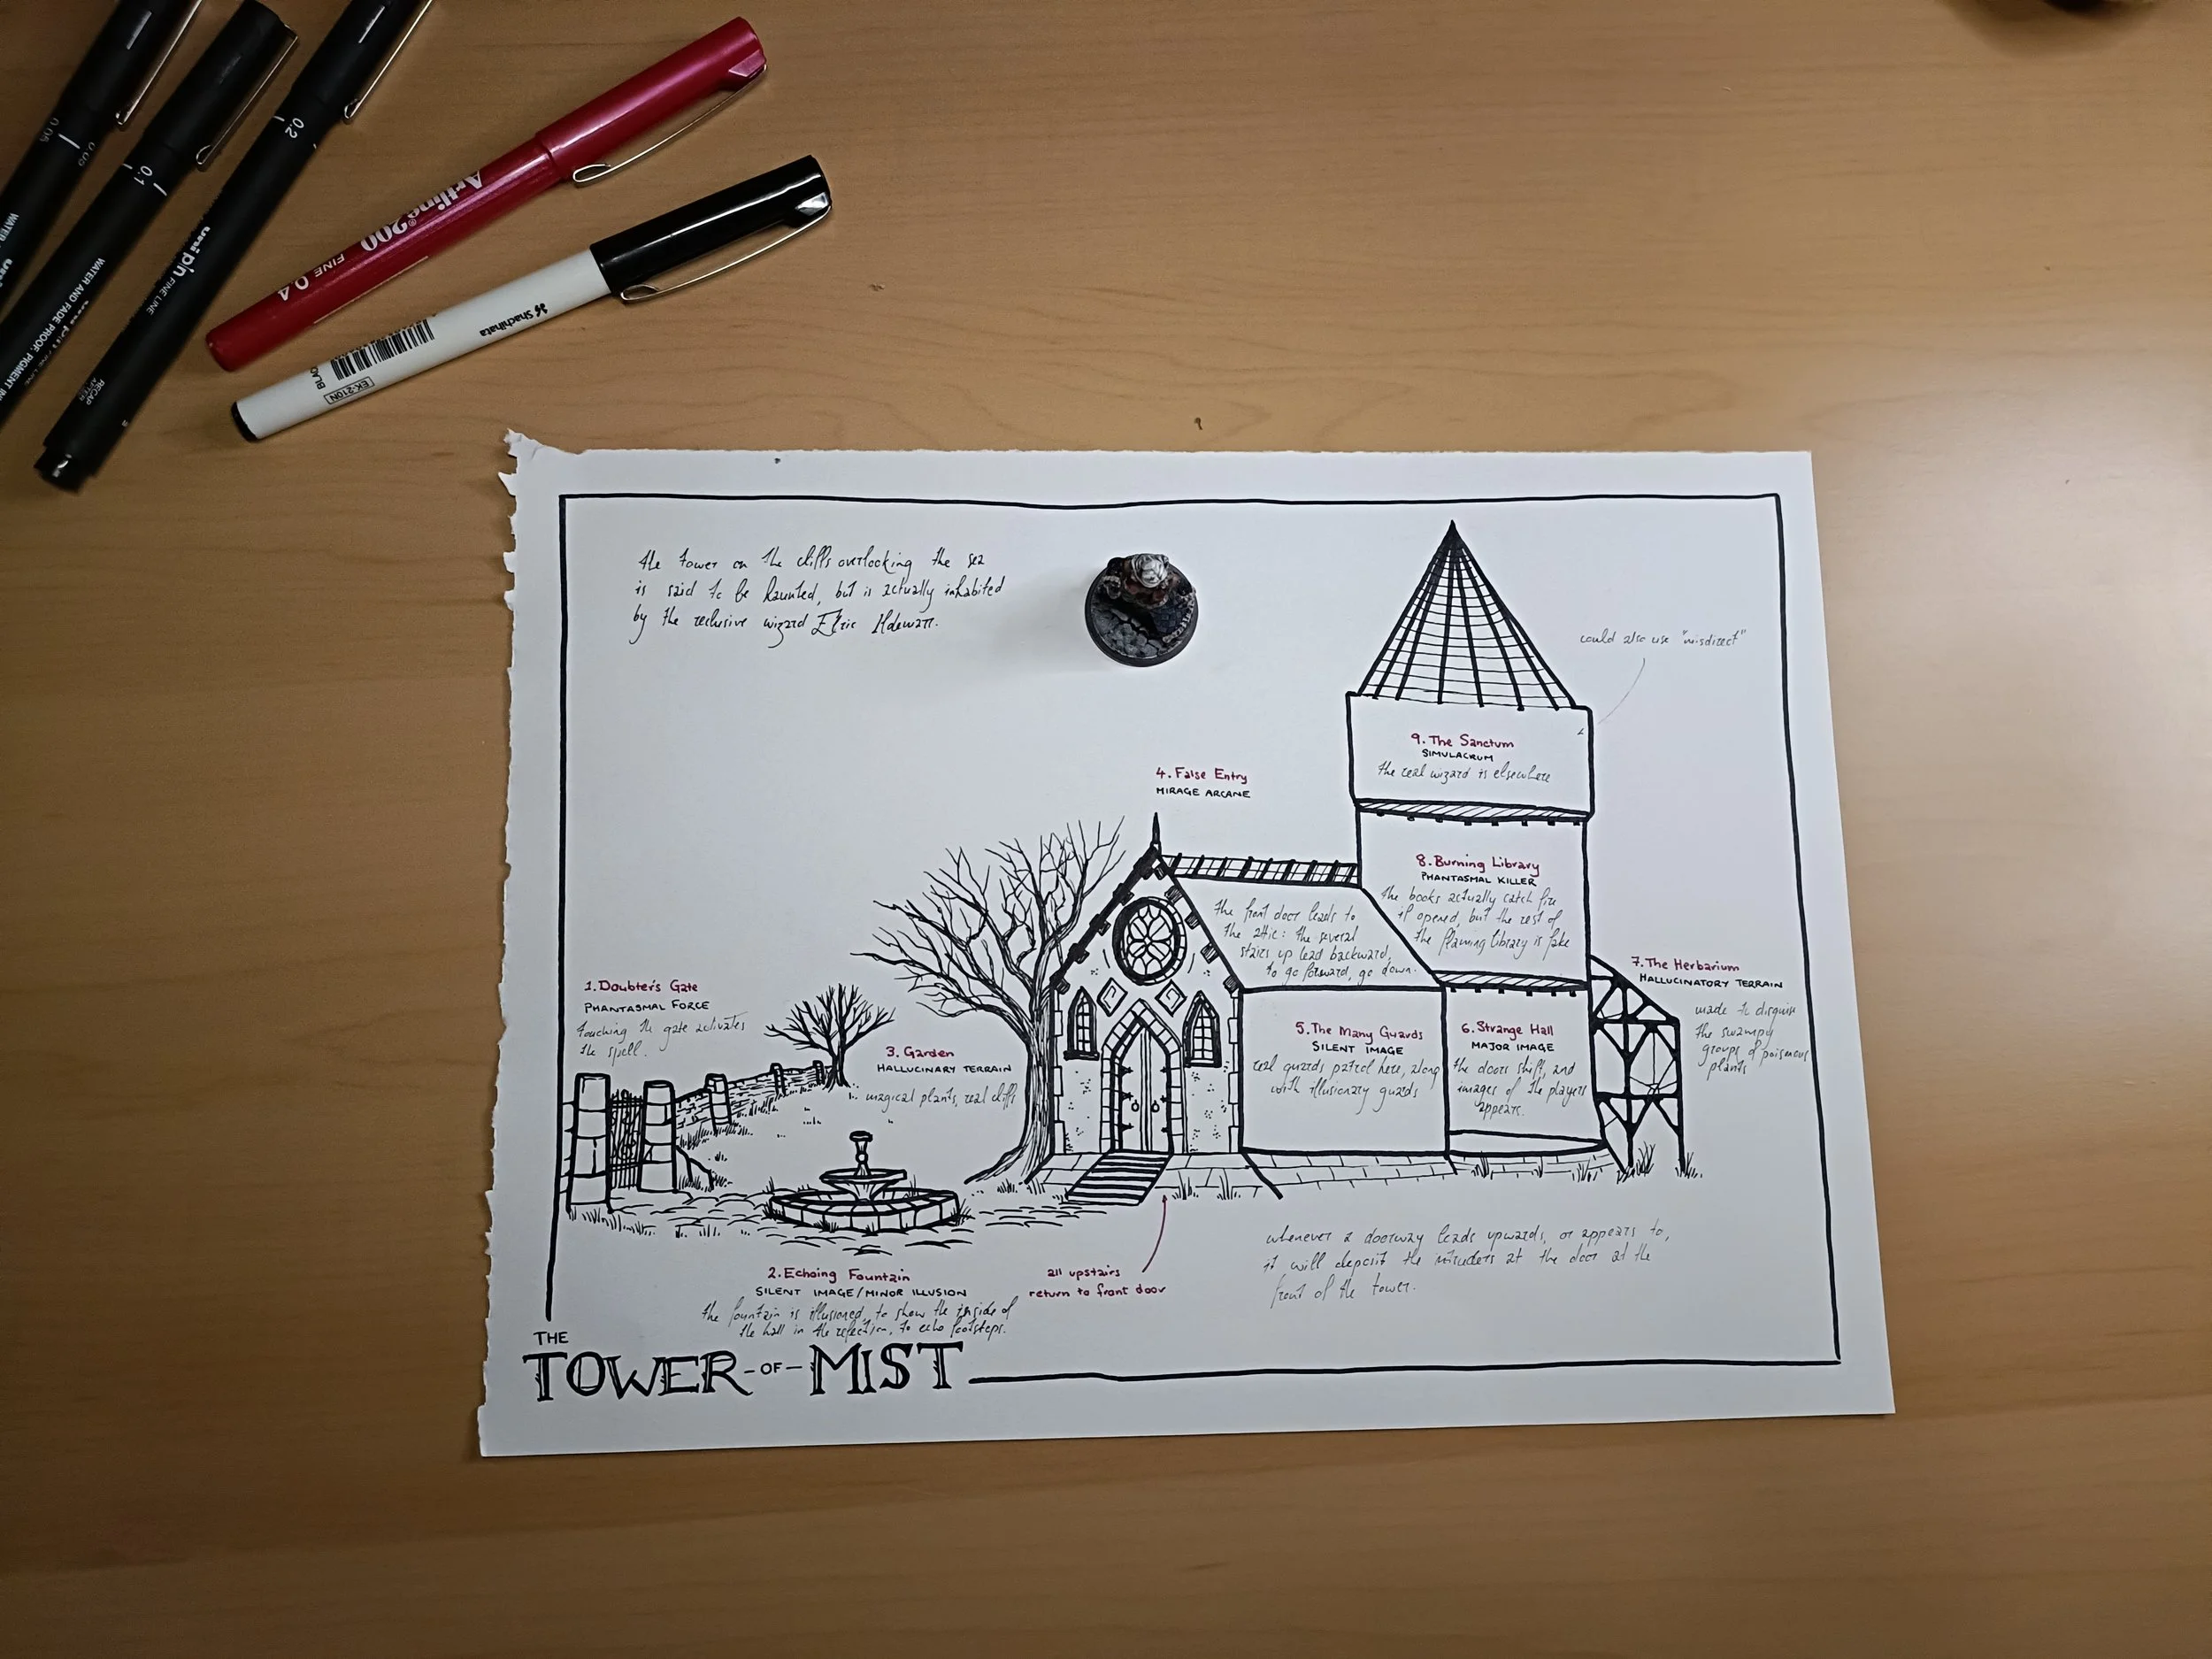 0.05
0.05
0.1
0.2
WATER AND FADE PROOF, PIGMENT
uni pin FINE LINE
RECAP AFTER
Artline 200
FINE 0.4
Shachihata
EK-210N
the tower on the cliffs overlooking the sea
is said to be haunted, but is actually inhabited
by the reclusive wizard Elric
could also use "misdirect"
9. The Sanctum
SIMULACRUM
the real wizard is elsewhere
4. False Entry
MIRAGE ARCANE
8. Burning Library
PHANTASMAL KILLER
the books actually catch fire
if opened, but the rest of
the flaming library is fake
the front door leads to
the attic: the several
stairs up lead backward,
to go forward, go down.
7. The Herbarium
HALLUCINATORY TERRAIN
made to disguise
the swampy
groups of poisonous
plants
1. Doubter's Gate
PHANTASMAL FORCE
touching the gate activates
the spell.
3. Garden
HALLUCINARY TERRAIN
magical plants, real cliffs
5. The Many Guards
SILENT IMAGE
real guards patrol here, along
with illusionary guards
6. Strange Hall
MAJOR IMAGE
the doors shift, and
images of the players
appears.
2. Echoing Fountain
SILENT IMAGE/MINOR ILLUSION
the fountain is illusioned, to show the inside of
the hall in the reflection, to echo footsteps.
all upstairs
return to front door
whenever a doorway leads upwards, or appears to,
it will deposit the intruders at the door at the
front of the tower.
THE
TOWER-OF-MIST